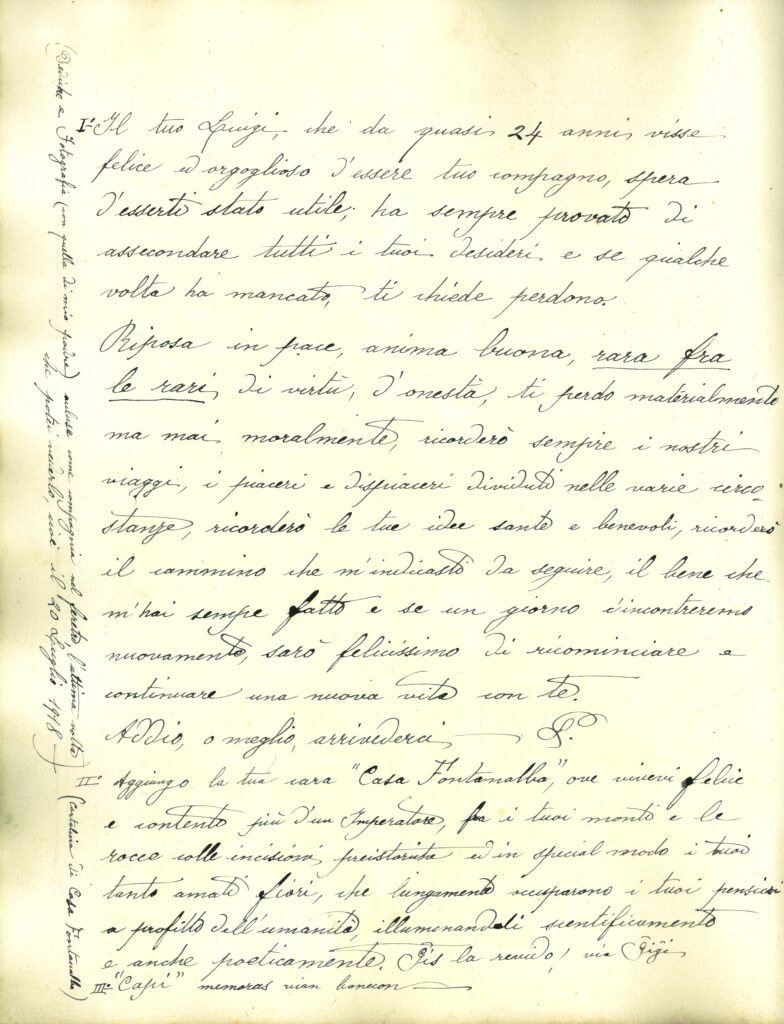 Iº Il tuo Luigi, che da quasi 24 anni visse
felice ed orgoglioso d'essere tuo compagno, spera
d'esserti stato utile; ha sempre provato di
assecondare tutti i tuoi desideri e se qualche
volta ha mancato, ti chiede perdono.
Riposa in pace, anima buona, rara fra
le rari di virtù, d'onestà, ti perdo materialmente
ma mai moralmente, ricorderò sempre i nostri
viaggi, i piaceri e dispiaceri dividuti nelle varie circo-
stanze, ricorderò le tue idee sante e benevoli, ricorderò
il cammino che m'indicasti da seguire, il bene che
m'hai sempe fatto e se un giorno c'incontreremo
nuovamente, sarò felicissimo di ricominciare e
continuare una nuova vita con te.
Addio, o meglio, arrivederci L.
IIº Aggiungo la tua cara "Casa Fontanalba", ove vivevi felice
e contento più d'un Imperatore, fra i tuoi monti e le
rocce colle incisioni preistoriste ed in special modo i tuoi
tanto amati fiori, che lungamente occuparono i tuoi pensieri
a profitto dell'umanità, illumenandoli scientificamente
e anche poeticamente. Ĝis la revido! via Gigi
IIIº "Capi" memoras vian bonecon
(Dediche e Fotografia (con quella di mio padre) acluse come compagnia nel feretro l'ultima volta
che potei vederlo, cioè il 20 Luglio 1918 –)
(cartolina di Casa Fontanalba)